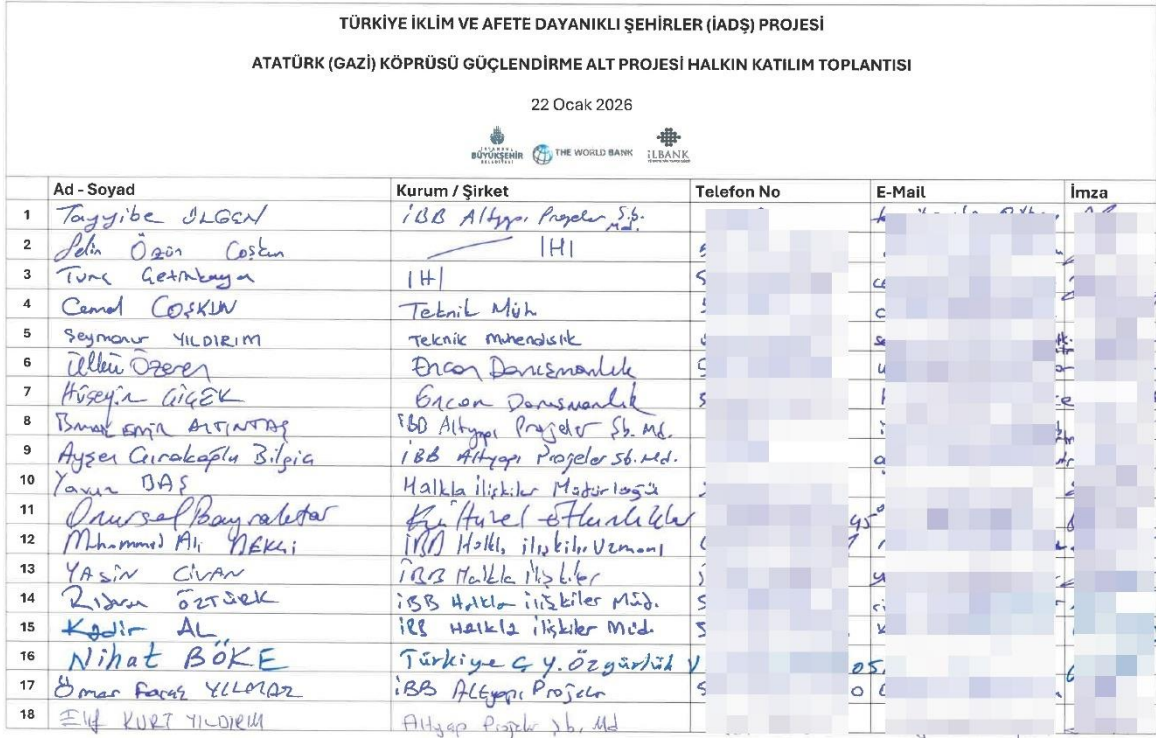 TÜRKİYE İKLİM VE AFETE DAYANIKLI ŞEHİRLER (İADŞ) PROJESİ
ATATÜRK (GAZİ) KÖPRÜSÜ GÜÇLENDİRME ALT PROJESİ HALKIN KATILIM TOPLANTISI
22 Ocak 2026
İSTANBUL BÜYÜKŞEHİR BELEDİYESİ THE WORLD BANK İLBANK
Ad - Soyad Kurum / Şirket Telefon No E-Mail İmza
1 Tayyibe İLGEN İBB Altyapı Projeler Şb. Md.
2 Pelin Özün Coşkun IHI
3 Tunç Çetinkaya IHI
4 Cemal COŞKUN Teknik Müh
5 Şeymanur YILDIRIM Teknik Mühendislik
6 Ülkü Özeren Encon Danışmanlık
7 Hüseyin ÇİÇEK Encon Danışmanlık
8 EMİR ALTINTAŞ İBB Altyapı Projeler Şb. Md.
9 Ayşen Çırakoğlu Bilgiç İBB Altyapı Projeler Şb. Md.
10 Yavuz BAŞ Halkla İlişkiler Müdürlüğü
11 Onursal Bayraktar Kültürel Etkinlikler
12 Muhammed Ali İBB Halkla ilişkiler Uzmanı
13 YASİN CİVAN İBB Halkla İlişkiler
14 Rıdvan ÖZTÜRK İBB Halkla ilişkiler Müd.
15 Kadir AL İBB Halkla ilişkiler Müd.
16 Nihat BÖKE Türkiye G Y. Özgürlük V
17 Ömer Faruk YILMAZ İBB Altyapı Projeler
18 Elif KURT YILDIRIM Altyapı Projeler Şb. Md